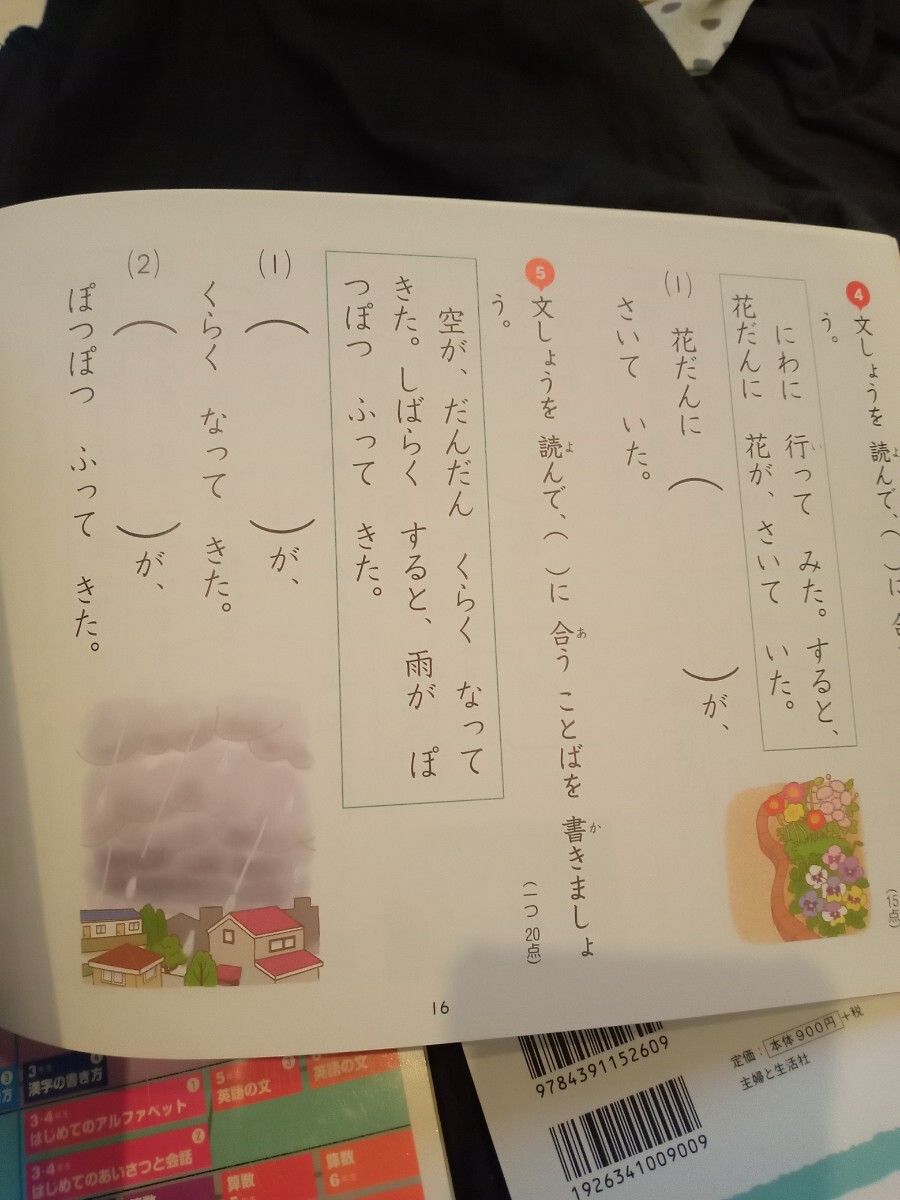 4
文しょうを 読んで、( )に 合
よ
う。
にわに 行って みた。すると、
い
花だんに 花が、さいて いた。
(1) 花だんに ( )が、
さいて いた。
(15点)
5
文しょうを 読んで、( )に 合う ことばを 書きましょ
よ
あ
か
う。
(一つ 20点)
空が、だんだん くらく なって
きた。しばらく すると、雨が ぽ
つぽつ ふって きた。
(1) ( )が、
くらく なって きた。
(2) ( )が、
ぽつぽつ ふって きた。
16
3年生
漢字の書き方
3・4年生
はじめてのアルファベット
1
3・4年生
はじめてのあいさつと会話
2
5年生
英語の文
3
英語の文
算数
算数
6年生
9784391152609
定価:本体900円+税
主婦と生活社
1926341009009